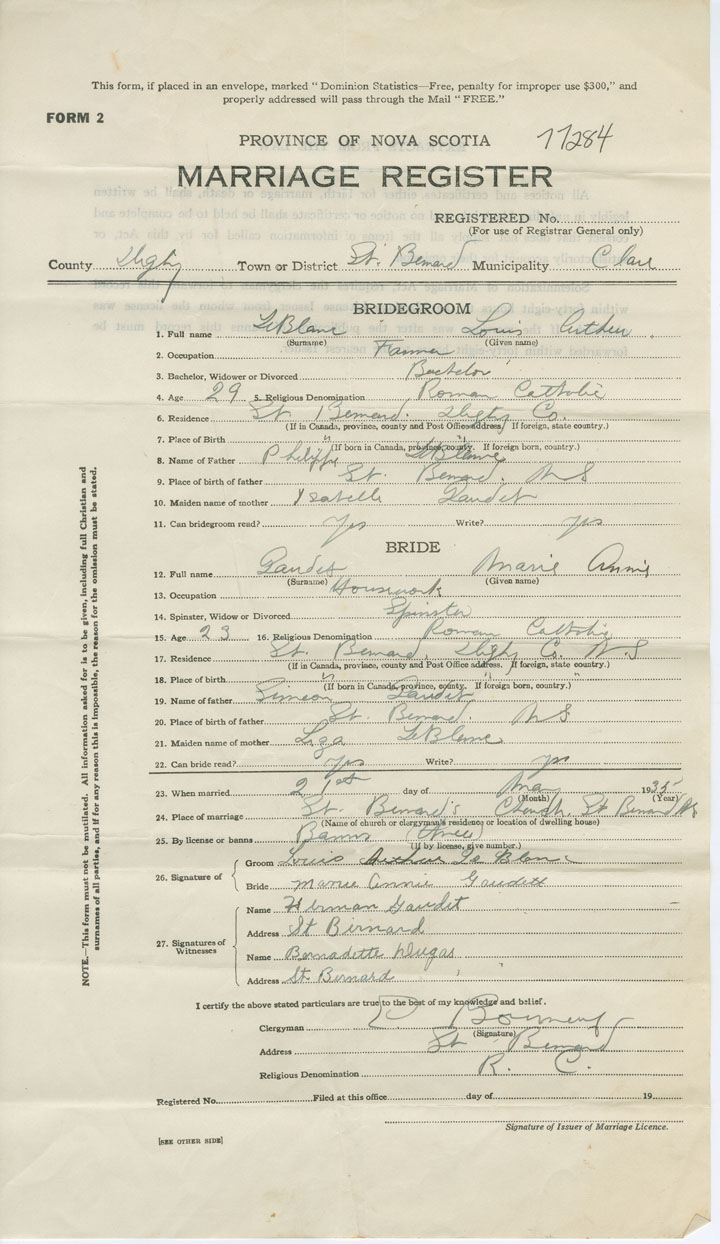 This form, if placed in an envelope, marked "Dominion Statistics—Free, penalty for improper use $300," and
properly addressed will pass through the Mail "FREE."
FORM 2
PROVINCE OF NOVA SCOTIA 77284
MARRIAGE REGISTER
REGISTERED No.
(For use of Registrar General only)
County Digby Town or District St. Bernard Municipality Clare
BRIDEGROOM
1. Full name LeBlanc Louis Arthur
(Surname) (Given name)
2. Occupation Farmer
3. Bachelor, Widower or Divorced Bachelor
4. Age 29 5. Religious Denomination Roman Catholic
6. Residence St. Bernard. Digby Co.
(If in Canada, province, county and Post Office address. If foreign, state country.)
7. Place of Birth " "
(If born in Canada, province, county. If foreign born, country.)
8. Name of Father Philippe LeBlanc
9. Place of birth of father St. Bernard. N S
10. Maiden name of mother Ysabelle Gaudet
11. Can bridegroom read? Yes Write? yes
BRIDE
12. Full name Gaudet Marie Annie
(Surname) (Given name)
13. Occupation Housework
14. Spinster, Widow or Divorced Spinster
15. Age 23 16. Religious Denomination Roman Catholic
17. Residence St. Bernard, Digby Co. N. S
(If in Canada, province, county and Post Office address. If foreign, state country.)
18. Place of birth " " "
(If born in Canada, province, county. If foreign born, country.)
19. Name of father Simeon Gaudet
20. Place of birth of father St. Bernard. N S
21. Maiden name of mother Liza LeBlanc
22. Can bride read? Yes Write? yes
23. When married 21st day of May 1935
(Month) (Year)
24. Place of marriage St. Bernard's Church, St Bernard NS
(Name of church or clergyman's residence or location of dwelling house)
25. By license or banns Banns (three)
(If by license, give number.)
26. Signature of Groom Louis Arthur Le Blanc
Bride Marie Annie Gaudett
27. Signatures of Witnesses
Name Herman Gaudet
Address St Birnard
Name Bernadette Dugas
Address St. Bernard
I certify the above stated particulars are true to the best of my knowledge and belief.
Clergyman
(Signature)
Address St Bernard
Religious Denomination R. C.
Registered No. Filed at this office day of 19
Signature of Issuer of Marriage Licence.
[SEE OTHER SIDE]
NOTE.—This form must not be mutilated. All information asked for is to be given, including full Christian and
surnames of all parties, and if for any reason this is impossible, the reason for the omission must be stated.